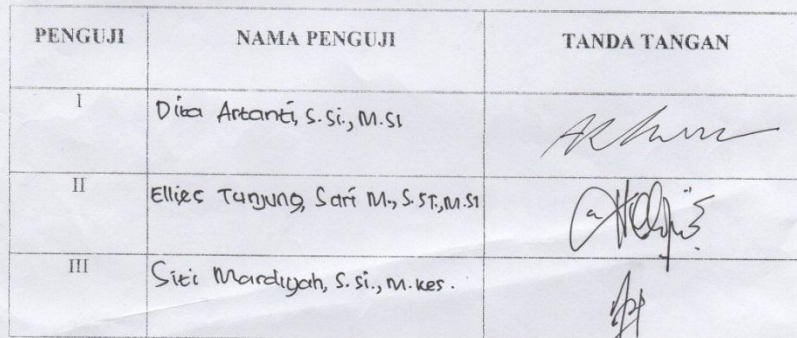 PENGUJI NAMA PENGUJI TANDA TANGAN
I Dita Artanti, S.Si., M.Si
II Ellies Tunjung, Sari M., S.ST., M.Si
III Siti Mardiyah, S.Si., M.Kes.